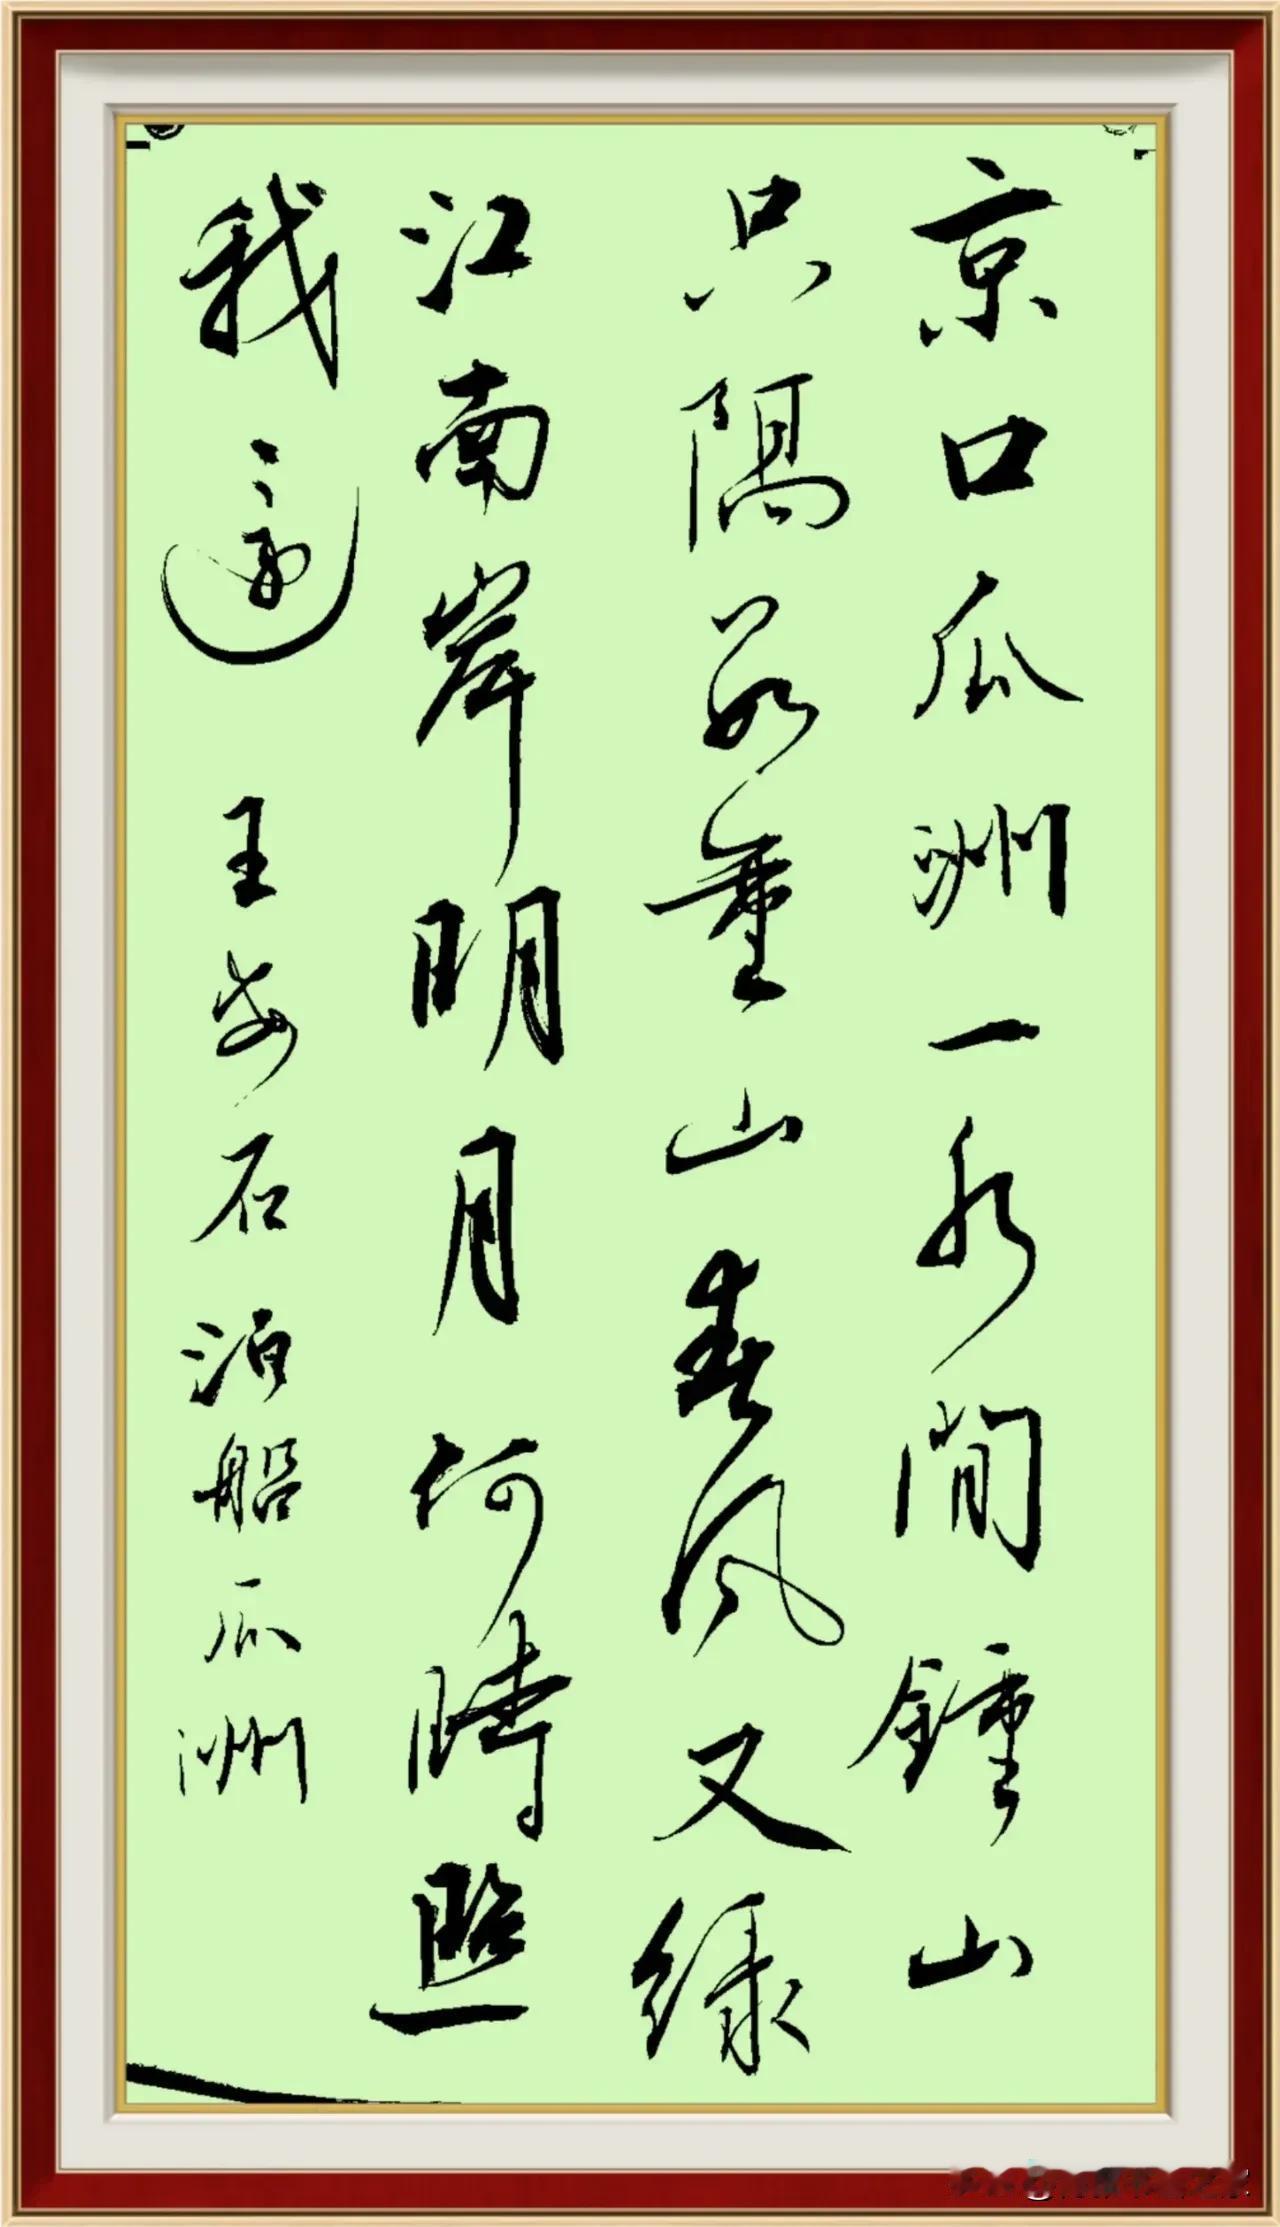 京口瓜洲一水間鍾山
只隔數重山春风又绿
江南岸明月何時照
我還 王安石泊船瓜洲